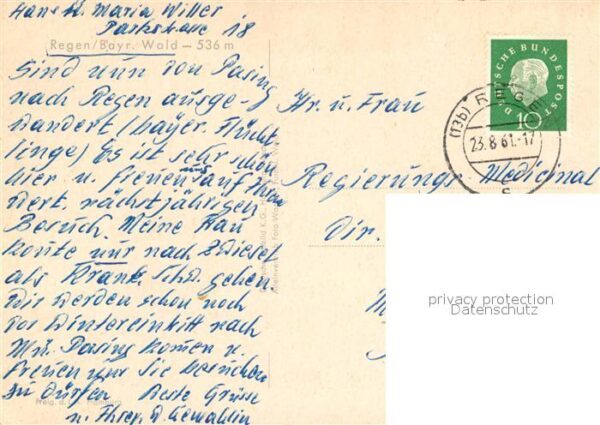 Hans u. Maria Willer
Parkstrasse 18
Regen/Bayr. Wald – 536 m
Sind nun von Pasing
nach Regen ausge-
wandert (bayer. Flücht
linge) Es ist sehr schön
hier u. freuen uns auf Ihren
wert. nächstjährigen
Besuch. Meine Frau
konte nur nach Zwiesel
als Krank. Schw. gehen
Wir werden schon noch
vor Wintereintritt nach
Mü. Pasing komen u.
freuen uns Sie besuchen
zu dürfen Beste Grüsse
u. Ihrer w. Gemahlin
Hr. u. Frau
Regierungs. Medicinal
Dir.
DEUTSCHE BUNDESPOST
10
(13b) REGEN
23.8.61.-17
privacy protection
Datenschutz